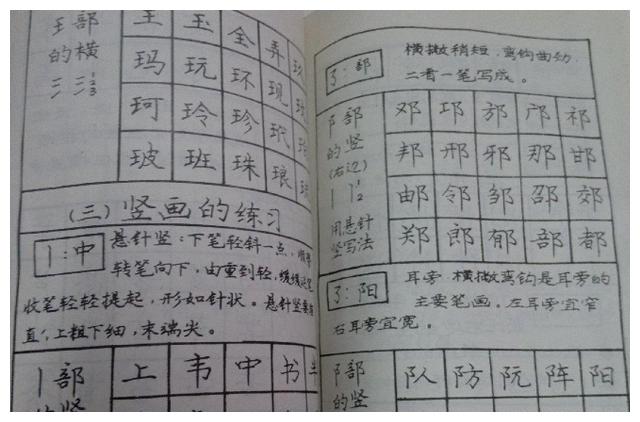 王部
的横
王 玉 全 弄
玛 玩 环 现
珂 玲 珍 玳
玻 班 珠 琅
(三)竖画的练习
丨:中
悬针竖:下笔轻斜一点,
转笔向下,由重到轻,缓缓
收笔轻轻提起,形如针状。悬针竖要
直,上粗下细,末端尖。
丨部
的竖
上 韦 中 书
阝:部
横撇稍短,弯钩曲劲,
二者一笔写成。
阝部
的竖
(右边)
用悬针
竖写法
邓 邛 邡 邝 祁
邦 邢 邪 那 邯
邮 邻 邹 邵 郊
郑 郎 郁 部 都
阝:阳
耳旁 横撇弯钩是耳旁的
主要笔画。左耳旁宜窄
右耳旁宜宽。
阝部
的竖
队 防 阮 阵 阳